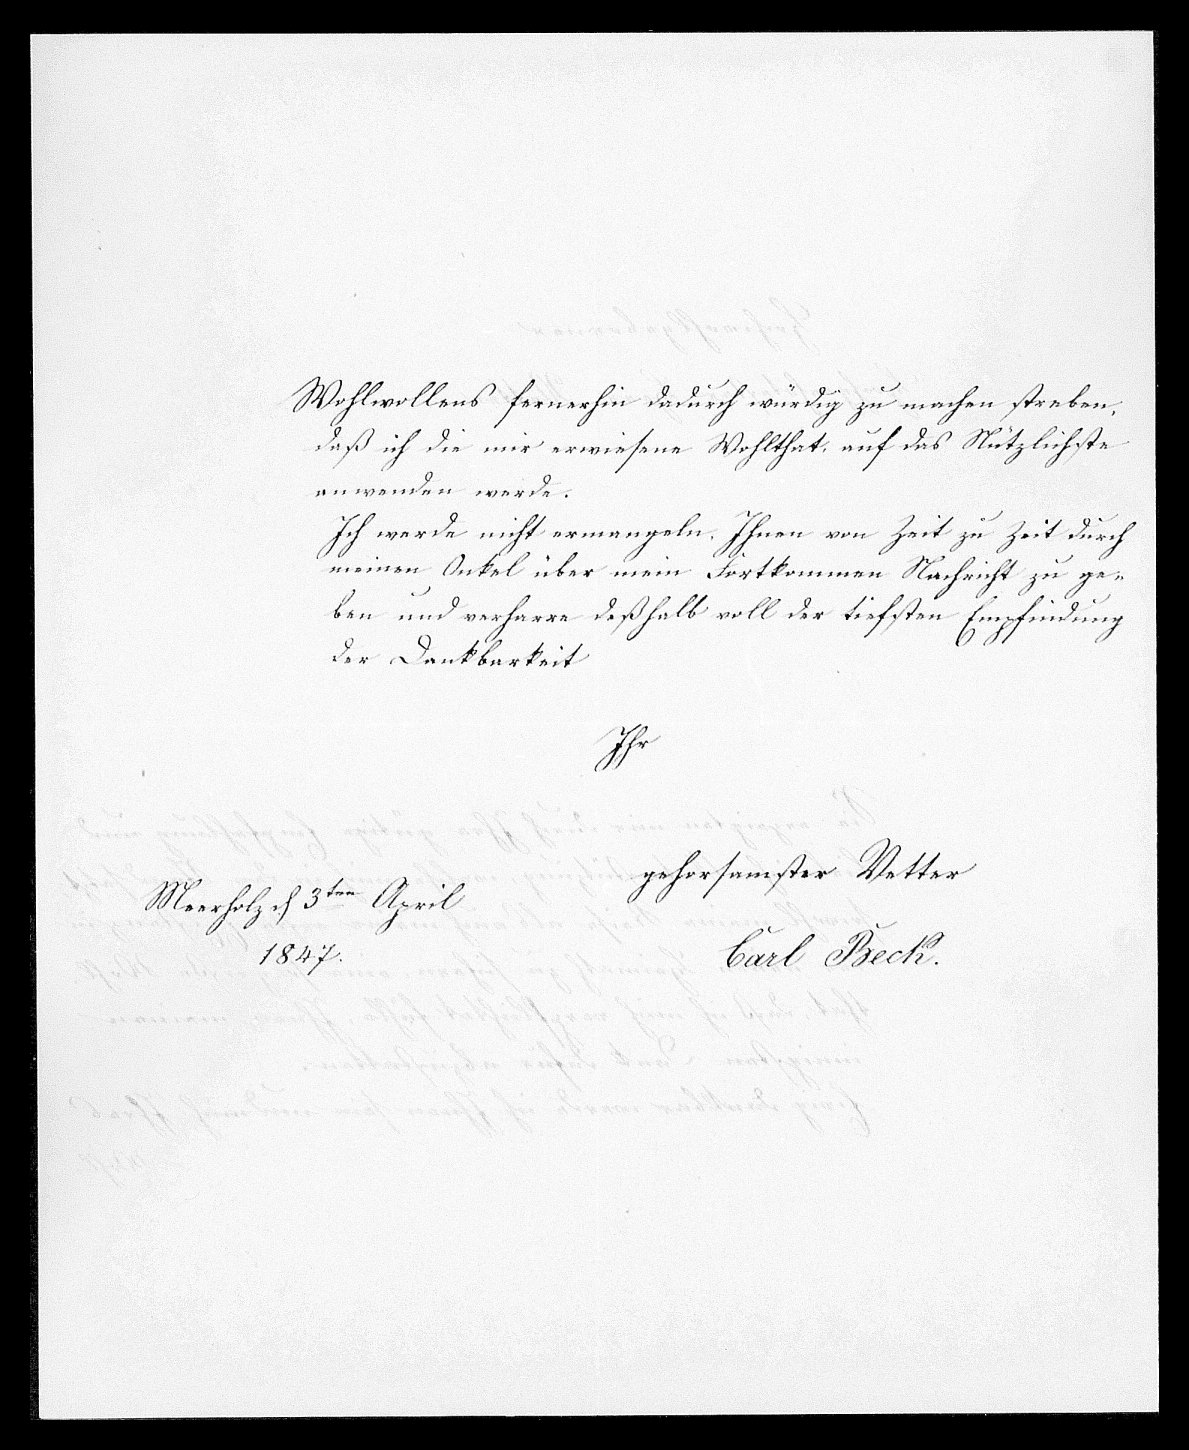 Wohlwollens fernerhin dadurch würdig zu machen streben,
daß ich die mir erwiesene Wohlthat, auf das Nützlichste
anwenden werde.
Ich werde nicht ermangeln, Ihnen von Zeit zu Zeit durch
meinen Onkel über mein Fortkommen Nachricht zu ge-
ben und verharre deßhalb voll der tiefsten Empfindung
der Dankbarkeit
Ihr
gehorsamster Vetter
Carl Beck.
Meerholz d 3ten April
1847.